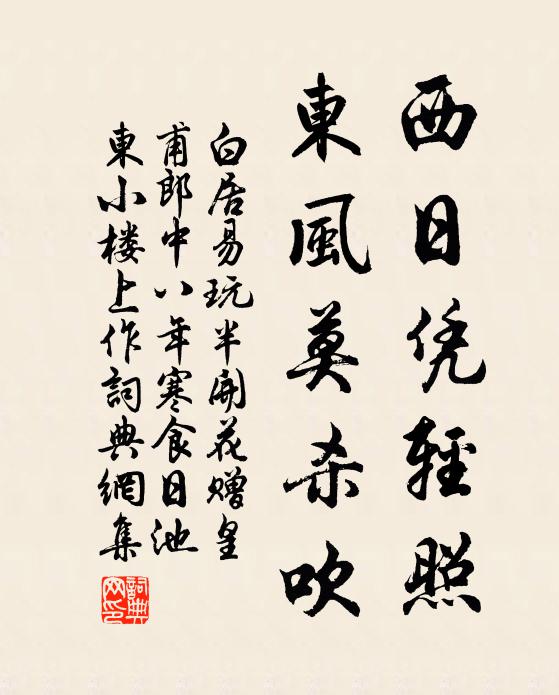 西日凭輕照
東風莫杀吹
白居易玩半開花赠皇
甫郎中八年寒食日池
東小楼上作詞典網集
詞典
网印